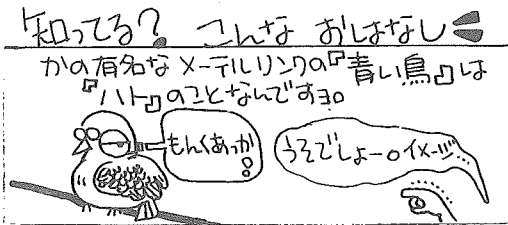 知ってる? こんな おはなし
かの有名な メーテルリンクの『青い鳥』は
『ハト』のことなんですョ。
もんくあっか
?
うそでしょー。イメージ…